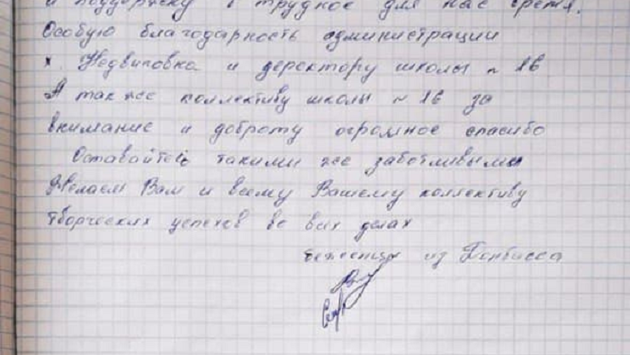 и поддержку в трудное для нас время.
Особую благодарность администрации
х. Недвиговка и деректору школы n 16
А так же коллективу школы ~ 16 за
внимание и доброту огромное спасибо
Оставайтесь такими же заботливыми
Желаем Вам и всему Вашему коллективу
творческих успехов во всех делах
беженцы из Донбасса